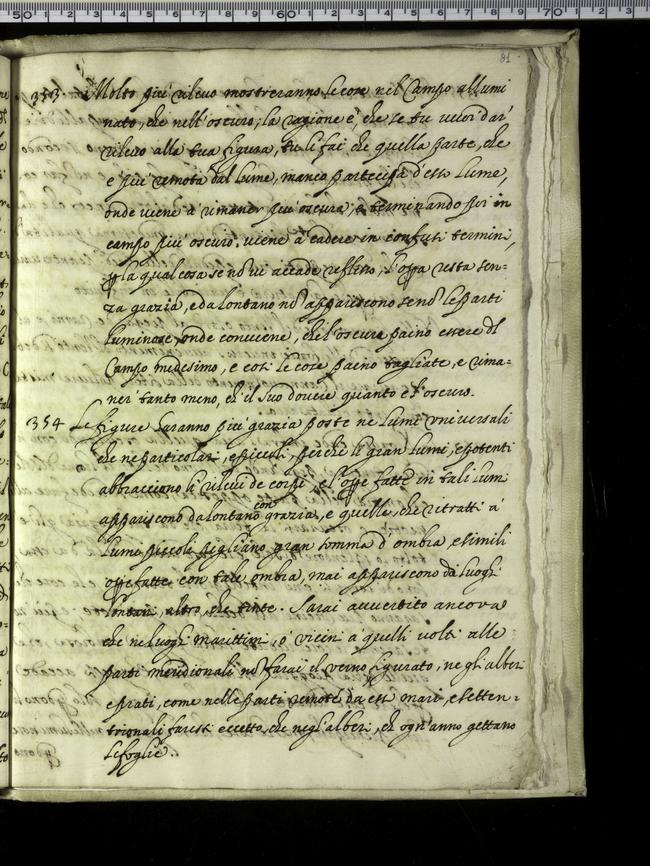 81.
353. Molto più rilevo mostreranno le cose nel Campo allumi
nato, che nell'oscuro; la ragione è, che se tu vuoi dar'
rilevo alla tua figura, tu li fai che quella parte, che
è più remota dal lume, manco partecipa d'esso lume,
onde viene à rimaner più oscura, e terminando poi in
campo più oscuro, viene à cadere in confusi termini,
la qual cosa se nō vi accade reflesso, l'opa resta sen-
za grazia, e da lontano nō appariscono senō le parti
luminose, onde conviene, che l'oscure paino essere dl
Campo medesimo, e così le cose paino tagliate, e rima-
ner' tanto meno, ch'il suo dovere quanto è l'oscuro.
354 Le figure haranno più grazia poste ne lumi universali
che ne particolari, e piccoli, perche li gran lumi, e potenti
abbracciono li rilievi de corpi, e l'ope fatte in tali lumi
appariscono da lontano con grazia, e quelle, che ritratti à
lumi piccoli pigliano gran somma d'ombra, e simili
ope fatte con tale ombra, mai appariscono da luoghi
lontani, altro, che tinte. Sarai avvertito ancora
che ne luoghi marittimi, o vicini à quelli volti alle
parti meridionali nō farai il verno figurato, ne gli alberi
e prati, come nelle parti remote da essi mari, e setten-
trionali faresti eccetto, che negl'alberi, ch' ogn'anno gettano
le foglie.